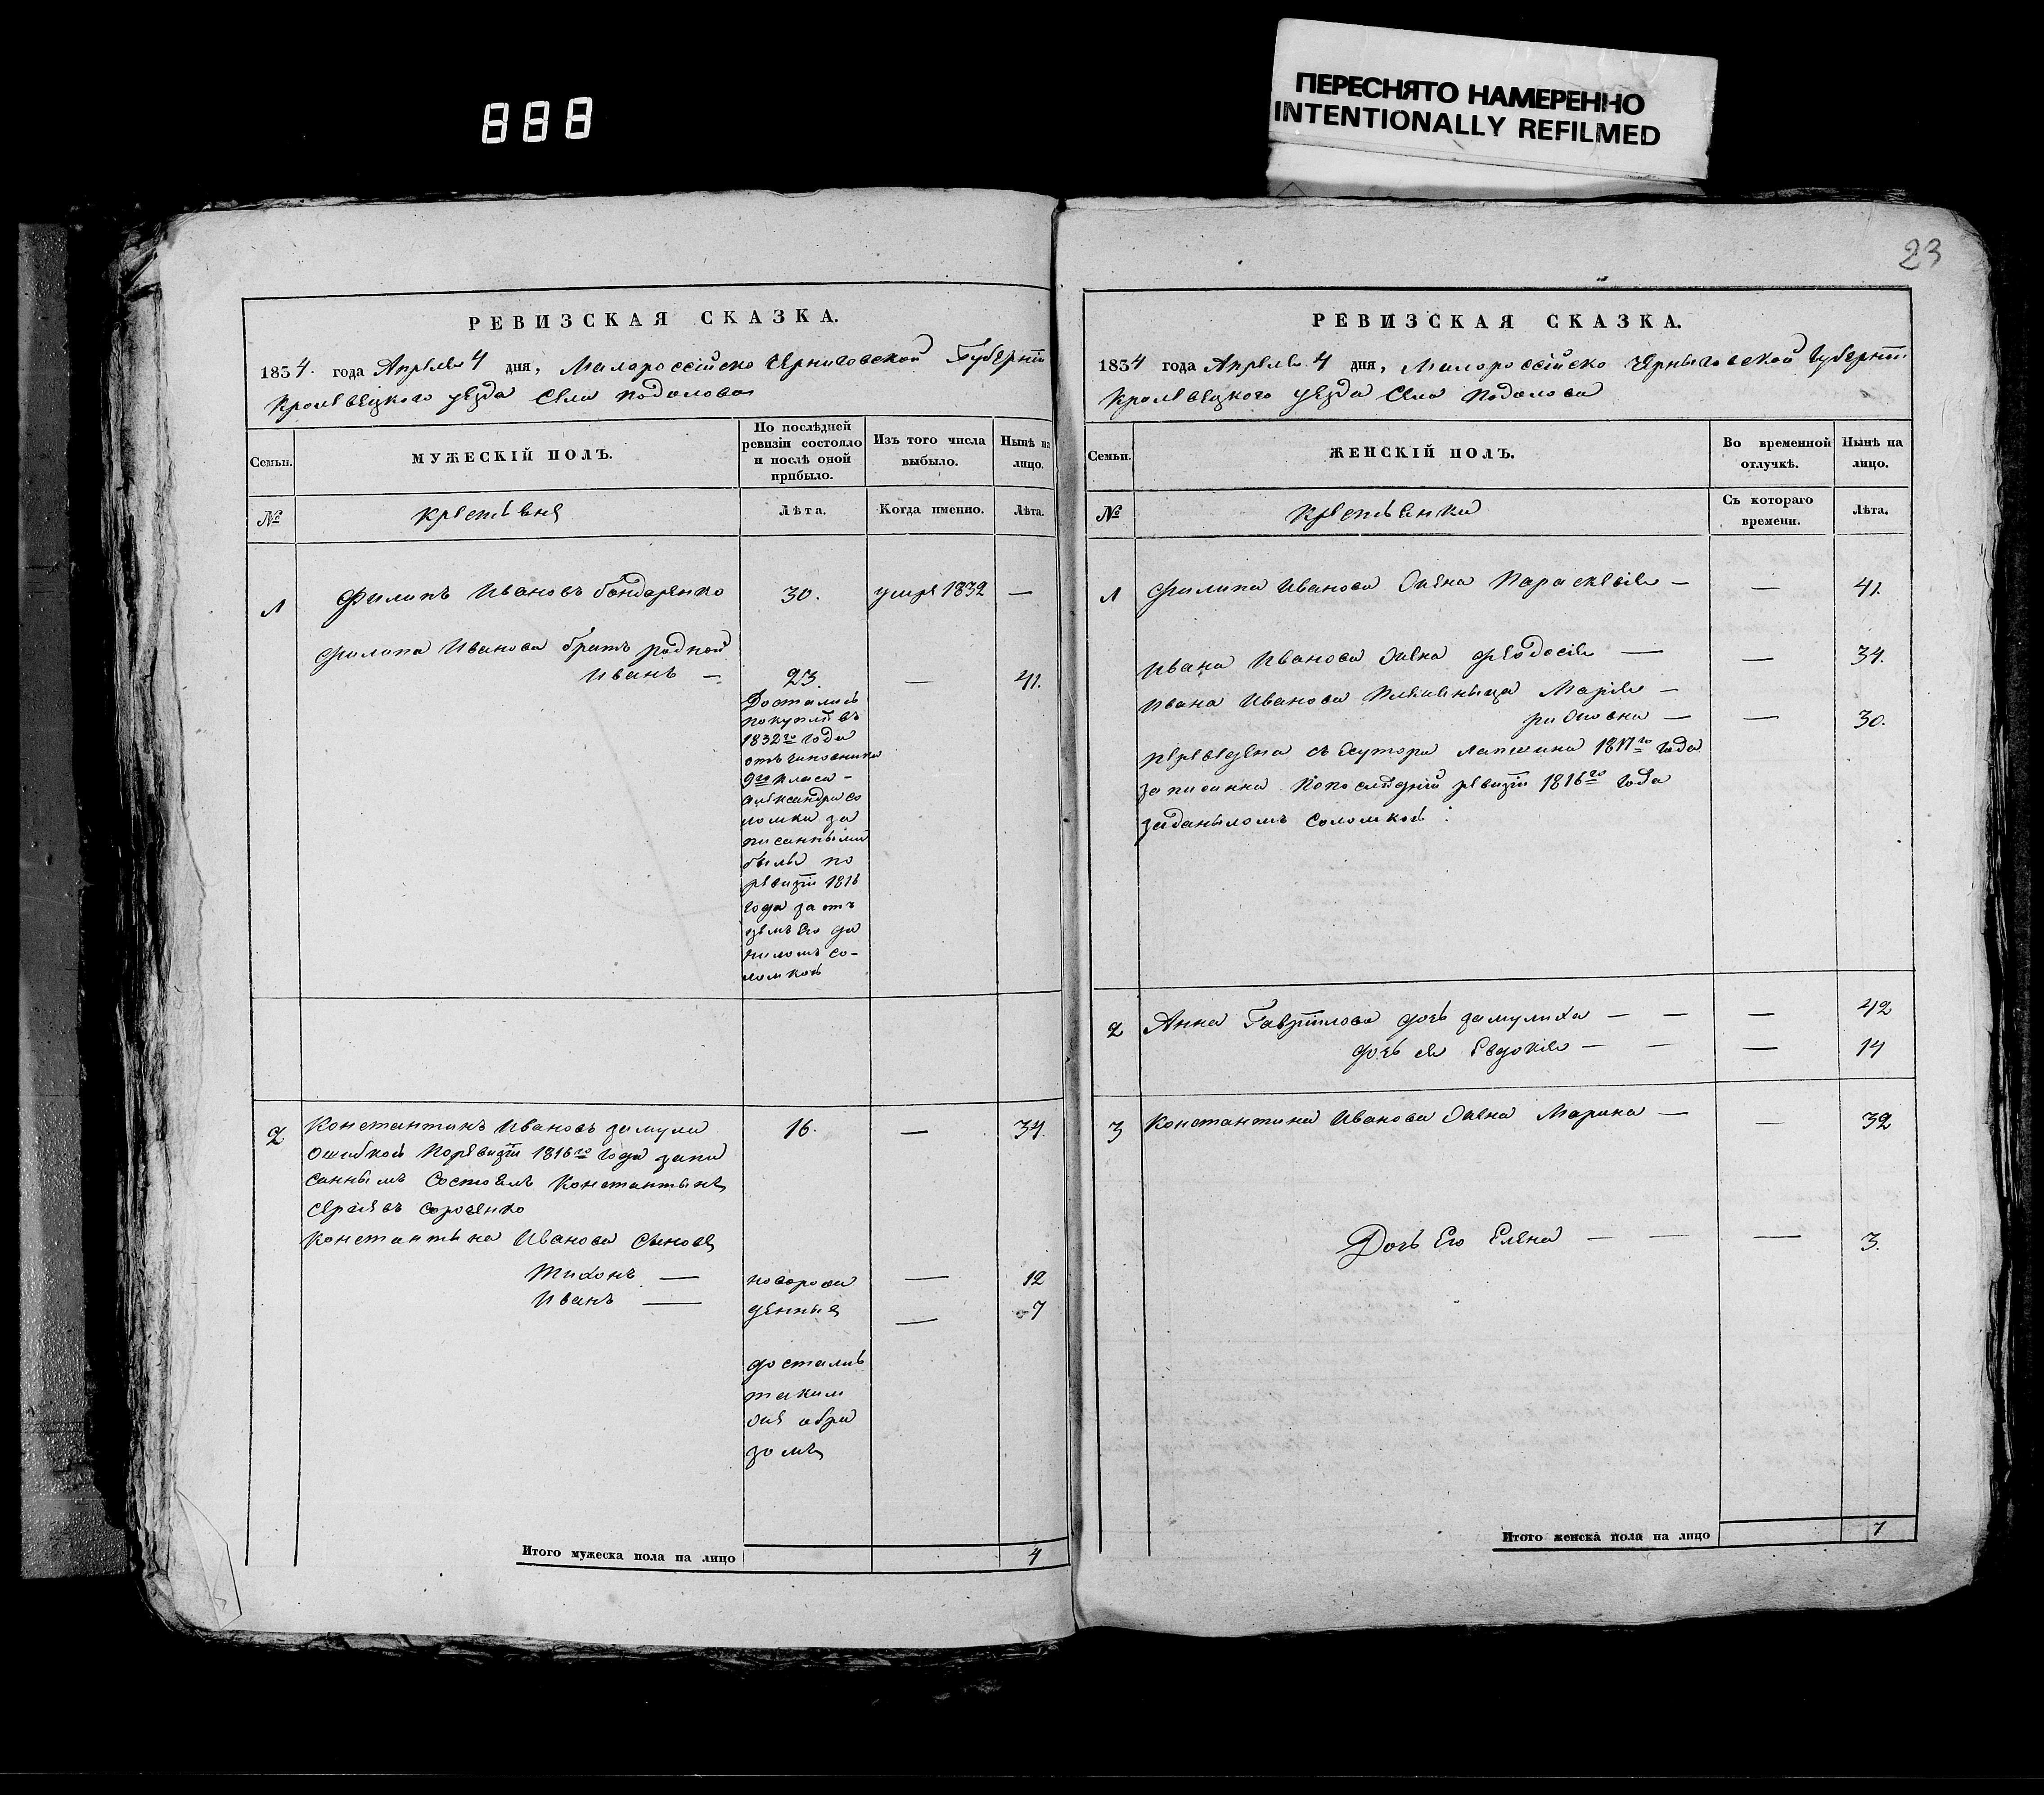 888
ПЕРЕСНЯТО НАМЕРЕННО
INTENTIONALLY REFILMED
23
РЕВИЗСКАЯ СКАЗКА.
1834. года Апреля 4 дня, Малороссійско Черниговской Губерніи
Кролевецкого уезда Села Подолова
Семьи.
МУЖЕСКІЙ ПОЛЪ.
По послѣдней
ревизіи состояло
и послѣ оной
прибыло.
Изъ того числа
выбыло.
Нынѣ на
лицо.
№
крестьяне
Лѣта.
Когда именно.
Лѣта.
1
Филипъ Ивановъ бондаренко
30.
умре 1832
—
Филипа Иванова братъ родной
Иванъ —
23.
—
41.
Достались
покупкой въ
1832го года
отъ чиновника
9го класа –
александра со
ломки за
писанными
были по
ревизіи 1816
года за от
цемъ его да
ниломъ со-
ломкой
2
Константинъ Ивановъ замула
16.
—
34.
ошибкой поревизіи 1816го года запи
саннымъ состоялъ Константынъ
сергѣевъ
Константына Иванова сынове
Тихонъ —
новорож
—
12
Иванъ —
денные
—
7
достались
таким
же обра
зомъ
Итого мужеска пола на лицо
4
РЕВИЗСКАЯ СКАЗКА.
1834 года Апреля 4 дня, Малороссійско Черныговской Губерніи
Кролевецкого уезда Села Подолова
Семьи.
ЖЕНСКІЙ ПОЛЪ.
Во временной
отлучкѣ.
Нынѣ на
лицо.
№
крестьянки
Съ котораго
времени.
Лѣта.
1
Филипа Иванова жена Параскевія —
—
41.
Ивана Иванова жена феодосія —
—
34.
Ивана Иванова племяныца Марія —
—
30.
переведена съ хутора лапшина 1817го года
записанна попоследней ревизіи 1816го года
заданыломъ соломкой.
2
Анна Гавріилова дочь замулиха — —
—
42
дочь ея Евдокія — —
—
14
3
Константина Иванова жена Марина —
—
32
Дочь Его Елена — —
—
3.
Итого женска пола на лицо
7